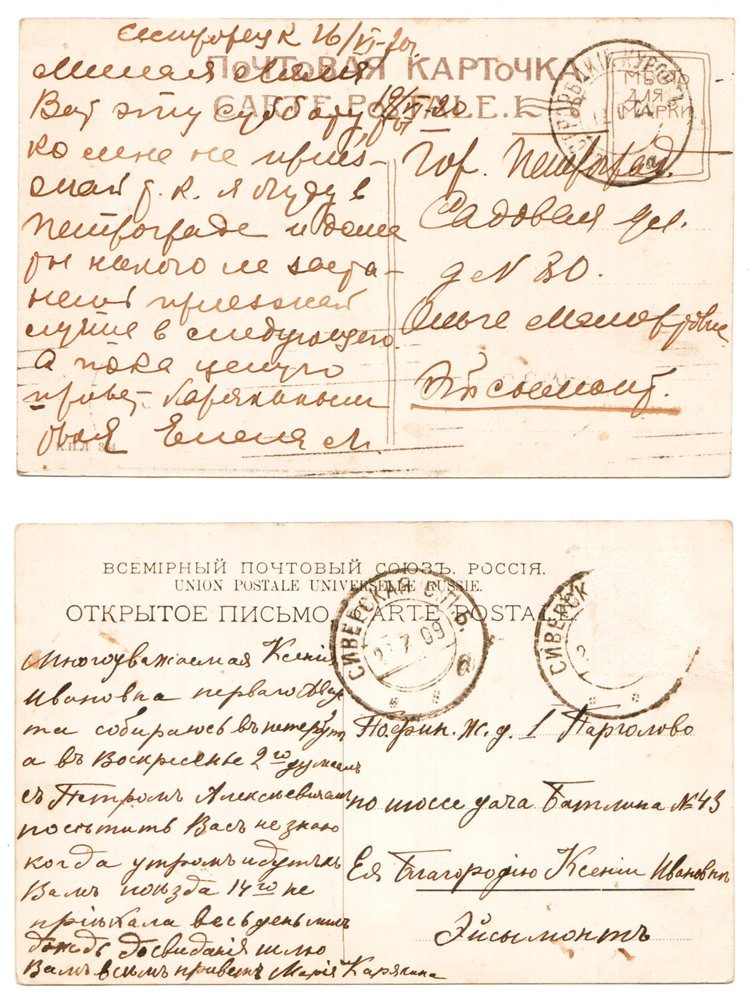 Сестрорецк 16/VI-20г
ПОЧТОВАЯ КАРТОЧКА
CARTE POSTALE
МѢСТО
ДЛЯ
МАРКИ
КУРОРТЪ
Милая
Вот эту субботу 19/VI-20
ко мне не приез-
жай т.к. я буду в
Петрограде и дома
ты никого не заста-
нешь приезжай
лучше в следующего.
А пока целую
привет
твоя Елена М.
Гор. Петроград.
Садовая ул.
д N 30.
Ольге
Эйсымонт.
ВСЕМІРНЫЙ ПОЧТОВЫЙ СОЮЗЪ. РОССІЯ.
UNION POSTALE UNIVERSELLE RUSSIE.
ОТКРЫТОЕ ПИСЬМО. CARTE POSTALE
СИВЕРСКАЯ СПБ.
СИВЕРСК
Многоуважаемая Ксенія
Ивановна перваго Авгу
ста собираюсь въ петербургъ
а въ Воскресенье 2го думаемъ
съ Петромъ Алексѣевичемъ
посѣтить Васъ не знаю
когда утромъ идутъ къ
Вамъ поѣзда 14го не
пріѣхала весь день лилъ
дождь досвиданія шлю
Вамъ всѣмъ приветъ Марія Карякина
По фин. ж. д. 1 Парголово
по шоссе дача Батлина № 43
Ея Благородію Ксеніи Ивановнѣ
Эйсымонтъ